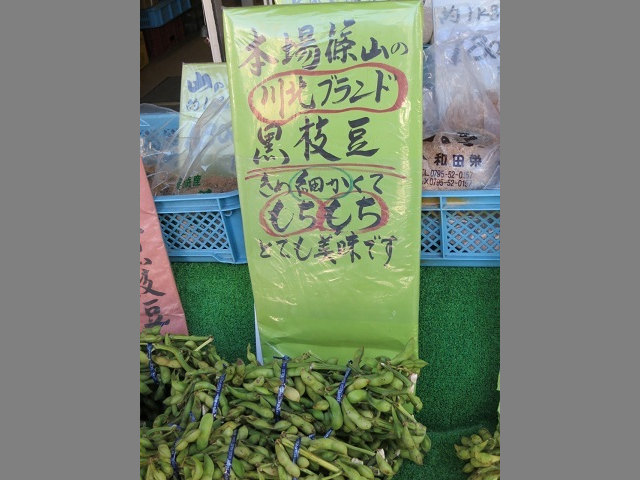 本場篠山の
川北ブランド
黒枝豆
きめ細かくて
もちもち
とても美味です
山の
約1kg
和田栄
TEL 0795-52-0157
FAX 0795-52-0157
枝豆